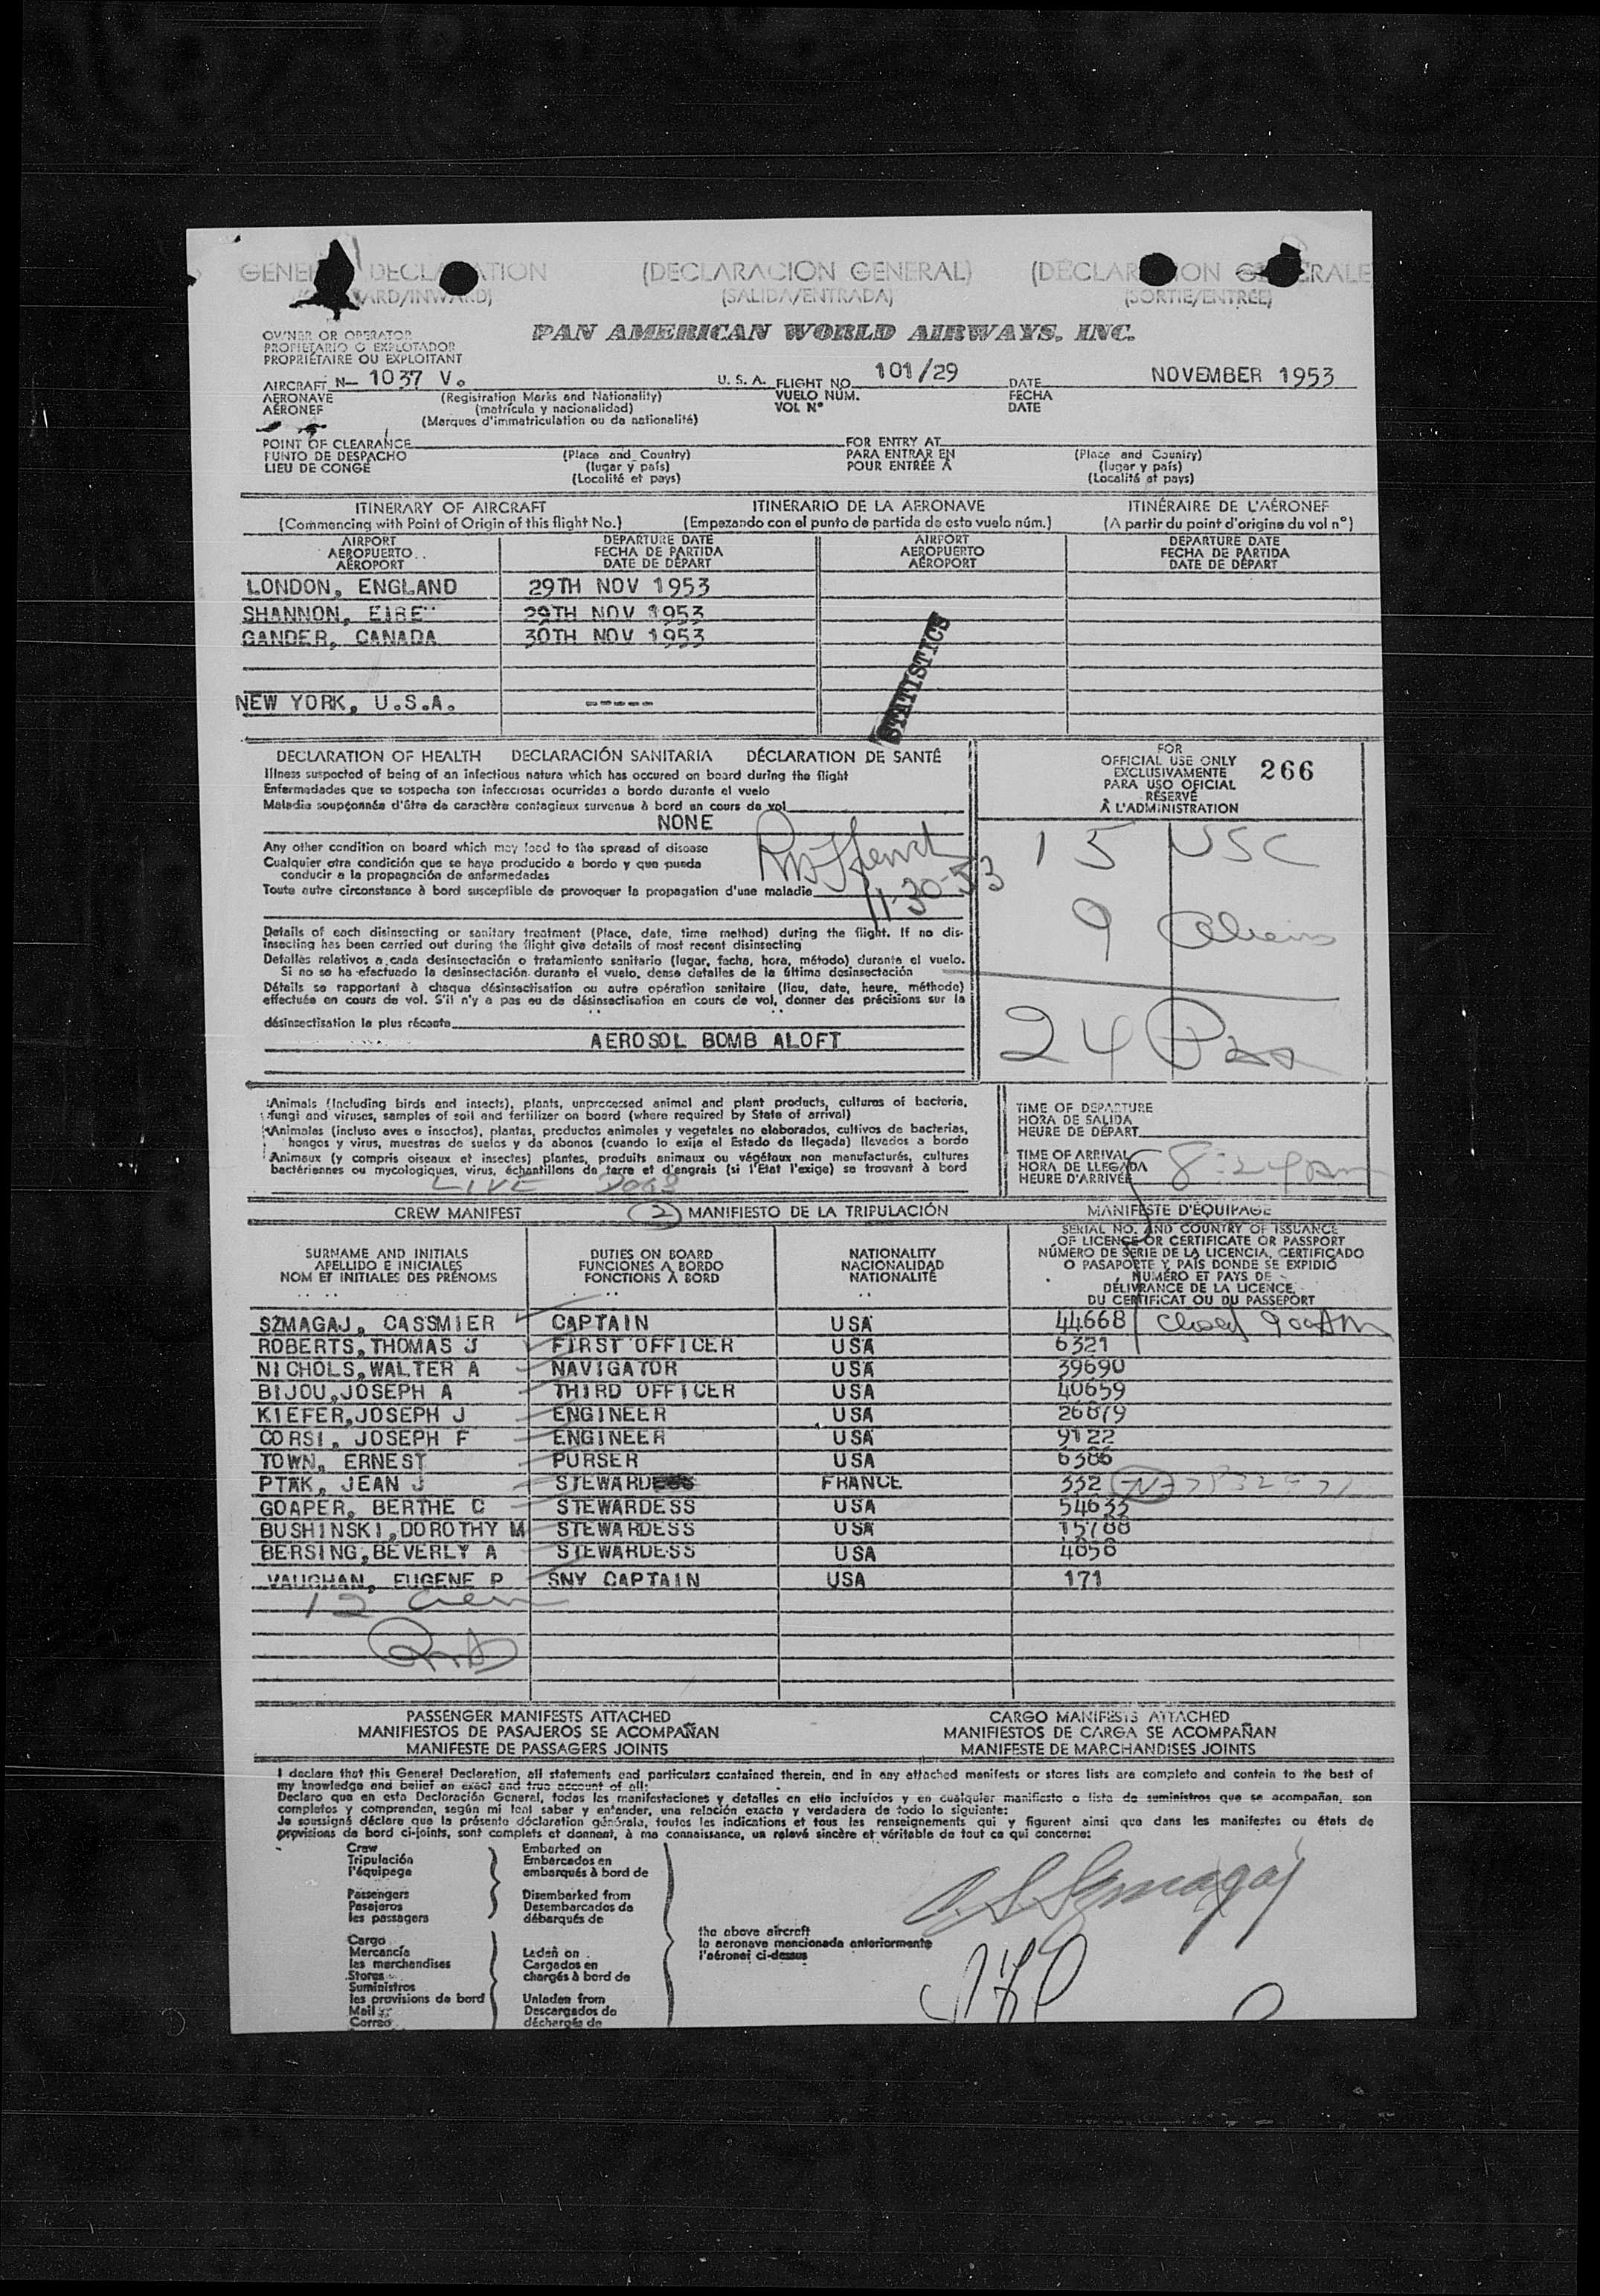 GENE DECLA ATION (DECLARACION GENERAL) (DÉCLAR ON ERALE
ARD/INWARD) (SALIDA/ENTRADA) (SORTIE/ENTRÉE)
OWNER OR OPERATOR
PROPIETARIO O EXPLOTADOR
PROPRIÉTAIRE OU EXPLOITANT
PAN AMERICAN WORLD AIRWAYS, INC.
AIRCRAFT N- 1037 V. U. S. A. FLIGHT NO. 101/29 DATE NOVEMBER 1953
AERONAVE (Registration Marks and Nationality) VUELO NÚM. FECHA
AÉRONEF (matrícula y nacionalidad) VOL N° DATE
(Marques d'immatriculation ou de nationalité)
POINT OF CLEARANCE FOR ENTRY AT
PUNTO DE DESPACHO (Place and Country) PARA ENTRAR EN (Place and Country)
LIEU DE CONGÉ (lugar y país) POUR ENTRÉE À (lugar y país)
(Localité et pays) (Localité et pays)
ITINERARY OF AIRCRAFT ITINERARIO DE LA AERONAVE ITINÉRAIRE DE L'AÉRONEF
(Commencing with Point of Origin of this flight No.) (Empezando con el punto de partida de esto vuelo núm.) (A partir du point d'origine du vol n°)
AIRPORT DEPARTURE DATE AIRPORT DEPARTURE DATE
AEROPUERTO FECHA DE PARTIDA AEROPUERTO FECHA DE PARTIDA
AÉROPORT DATE DE DÉPART AÉROPORT DATE DE DÉPART
LONDON, ENGLAND 29TH NOV 1953
SHANNON, EIRE 29TH NOV 1953
GANDER, CANADA 30TH NOV 1953
STATISTICS
NEW YORK, U.S.A. -----
DECLARATION OF HEALTH DECLARACIÓN SANITARIA DÉCLARATION DE SANTÉ
Illness suspected of being of an infectious nature which has occured on board during the flight
Enfermedades que se sospecha son infecciosas ocurridas a bordo durante el vuelo
Maladie soupçonnée d'être de caractère contagieux survenue à bord en cours de vol
NONE
Any other condition on board which may lead to the spread of disease
Cualquier otra condición que se haya producido a bordo y que pueda
conducir a la propagación de enfermedades
Toute autre circonstance à bord susceptible de provoquer la propagation d'une maladie
11-30-53
Details of each disinsecting or sanitary treatment (Place, date, time method) during the flight. If no dis-
insecting has been carried out during the flight give details of most recent disinsecting
Detalles relativos a cada desinsectación o tratamiento sanitario (lugar, fecha, hora, método) durante el vuelo.
Si no se ha efectuado la desinsectación durante el vuelo, dense detalles de la última desinsectación
Détails se rapportant à chaque désinsectisation ou autre opération sanitaire (lieu, date, heure, méthode)
effectuée en cours de vol. S'il n'y a pas eu de désinsectisation en cours de vol, donner des précisions sur la
désinsectisation la plus récente
AEROSOL BOMB ALOFT
FOR
OFFICIAL USE ONLY
EXCLUSIVAMENTE
PARA USO OFICIAL
RÉSERVÉ
À L'ADMINISTRATION
266
15 USC
9 Aliens
24 Pax
Animals (Including birds and insects), plants, unprocessed animal and plant products, cultures of bacteria,
fungi and viruses, samples of soil and fertilizer on board (where required by State of arrival)
Animales (incluso aves e insectos), plantas, productos animales y vegetales no elaborados, cultivos de bacterias,
hongos y virus, muestras de suelos y de abonos (cuando lo exija el Estado de llegada) llevados a bordo
Animaux (y compris oiseaux et insectes) plantes, produits animaux ou végétaux non manufacturés, cultures
bactériennes ou mycologiques, virus, échantillons de terre et d'engrais (si l'Etat l'exige) se trouvant à bord
LIVE DOGS
TIME OF DEPARTURE
HORA DE SALIDA
HEURE DE DÉPART
TIME OF ARRIVAL
HORA DE LLEGADA
HEURE D'ARRIVÉE 8:24 AM
CREW MANIFEST 2 MANIFIESTO DE LA TRIPULACIÓN MANIFESTE D'ÉQUIPAGE
SURNAME AND INITIALS
APELLIDO E INICIALES
NOM ET INITIALES DES PRÉNOMS
DUTIES ON BOARD
FUNCIONES A BORDO
FONCTIONS À BORD
NATIONALITY
NACIONALIDAD
NATIONALITÉ
SERIAL NO. AND COUNTRY OF ISSUANCE
OF LICENCE OR CERTIFICATE OR PASSPORT
NÚMERO DE SERIE DE LA LICENCIA, CERTIFICADO
O PASAPORTE Y PAÍS DONDE SE EXPIDIÓ
NUMÉRO ET PAYS DE
DÉLIVRANCE DE LA LICENCE,
DU CERTIFICAT OU DU PASSEPORT
SZMAGAJ, CASSMIER CAPTAIN USA 44668 Closed 9 00 AM
ROBERTS, THOMAS J FIRST OFFICER USA 6321
NICHOLS, WALTER A NAVIGATOR USA 39690
BIJOU, JOSEPH A THIRD OFFICER USA 40659
KIEFER, JOSEPH J ENGINEER USA 26879
CORSI, JOSEPH F ENGINEER USA 9122
TOWN, ERNEST PURSER USA 6386
PTAK, JEAN J STEWARD FRANCE 332
GOAPER, BERTHE C STEWARDESS USA 54633
BUSHINSKI, DOROTHY M STEWARDESS USA 15788
BERSING, BEVERLY A STEWARDESS USA 4858
VAUGHAN, EUGENE P SNY CAPTAIN USA 171
12 Crew
PASSENGER MANIFESTS ATTACHED CARGO MANIFESTS ATTACHED
MANIFIESTOS DE PASAJEROS SE ACOMPAÑAN MANIFIESTOS DE CARGA SE ACOMPAÑAN
MANIFESTE DE PASSAGERS JOINTS MANIFESTE DE MARCHANDISES JOINTS
I declare that this General Declaration, all statements and particulars contained therein, and in any attached manifests or stores lists are complete and contain to the best of
my knowledge and belief an exact and true account of all:
Declaro que en esta Declaración General, todas las manifestaciones y detalles en ella incluidos y en cualquier manifiesto o lista de suministros que se acompañan, son
completos y comprenden, según mi leal saber y entender, una relación exacta y verdadera de todo lo siguiente:
Je soussigné déclare que la présente déclaration générale, toutes les indications et tous les renseignements qui y figurent ainsi que dans les manifestes ou états de
provisions de bord ci-joints, sont complets et donnent, à ma connaissance, un relevé sincère et véritable de tout ce qui concerne:
Crew Embarked on
Tripulación Embarcados en
l'équipage embarqués à bord de
Passengers Disembarked from
Pasajeros Desembarcados de
les passagers débarqués de
the above aircraft
la aeronave mencionada anteriormente
l'aéronef ci-dessus
Cargo
Mercancía Laden on
les merchandises Cargados en
Stores chargés à bord de
Suministros
les provisions de bord Unladen from
Mail Descargados de
Correo déchargés de
C. S. Szmagaj